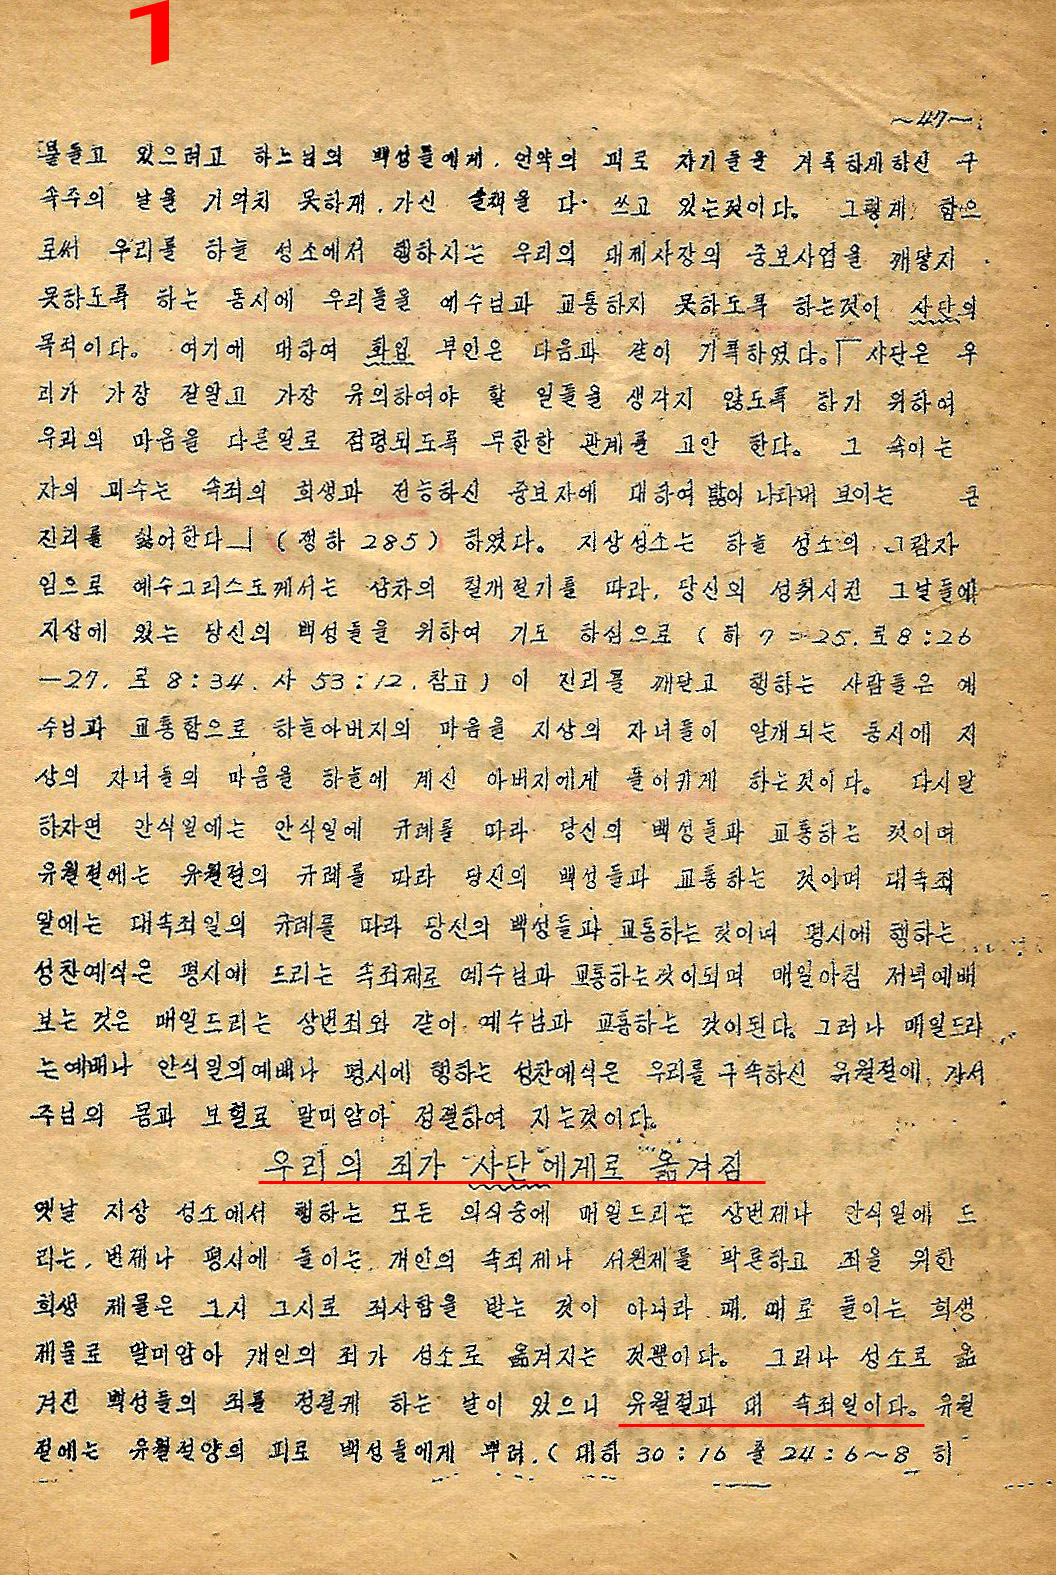 1
~47~
붙들고 있으려고 하느님의 백성들에게. 언약의 피로 자기들을 거룩하게하신 구
속주의 날을 기억치 못하게. 갖인 술책을 다· 쓰고 있는것이다. 그렇게 함으
로써 우리를 하늘 성소에서 행하시는 우리의 대제사장의 중보사업을 깨닿지
못하도록 하는 동시에 우리들을 예수님과 교통하지 못하도록 하는것이 사단의
목적이다. 여기에 대하여 화잍 부인은 다음과 같이 기록하였다.「사단은 우
리가 가장 잘알고 가장 유의하여야 할 일들을 생각지 않도록 하기 위하여
우리의 마음을 다른일로 점령되도록 무한한 관계를 고안 한다. 그 속이는
자의 괴수는 속죄의 희생과 전능하신 중보자에 대하여 밝이 나타내 보이는 큰
진리를 싫어한다」 (쟁하 285) 하였다. 지상성소는 하늘 성소의 그림자
임으로 예수그리스도께서는 삼차의 칠개절기를 따라. 당신의 성취시킨 그날들에
지상에 있는 당신의 백성들을 위하여 기도 하심으로 (히 7=25. 로8:26
—27. 로 8:34. 사 53:12. 참고) 이 진리를 깨닫고 행하는 사람들은 예
수님과 교통함으로 하늘아버지의 마음을 지상의 자녀들이 알게되는 동시에 지
상의 자녀들의 마음을 하늘에 계신 아버지에게 들이키게 하는것이다. 다시말
하자면 안식일에는 안식일에 규례를 따라 당신의 백성들과 교통하는 것이며
유월절에는 유월절의 규례를 따라 당신의 백성들과 교통하는 것이며 대속죄
일에는 대속죄일의 규례를 따라 당신의 백성들과 교통하는것이며 평시에 행하는
성찬예식은 평시에 드리는 속죄제로 예수님과 교통하는것이되며 매일아침 저녁예배
보는 것은 매일드리는 상번죄와 같이 예수님과 교통하는 것이된다. 그러나 매일드리
는예배나 안식일의예배나 평시에 행하는 성찬예식은 우리를 구속하신 유월절에. 가서
주님의 몸과 보혈로 말미암아 정결하여 지는것이다.
우리의 죄가 사단에게로 옮겨짐
옛날 지상 성소에서 행하는 모든 의식중에 매일드리는 상번제나 안식일에 드
리는. 번제나 평시에 들이는. 개인의 속죄제나 서원제를 막론하고 죄을 위한
희생 제물은 그시 그시로 죄사함을 받는 것이 아니라 때. 때로 들이는 희생
제물로 말미암아 개인의 죄가 성소로 옮겨지는 것뿐이다. 그러나 성소로 옮
겨진 백성들의 죄를 정결케 하는 날이 있으니 유월절과 대 속죄일이다. 유월
절에는 유월절양의 피로 백성들에게 뿌려. (대하 30:16 출 24:6~8 히